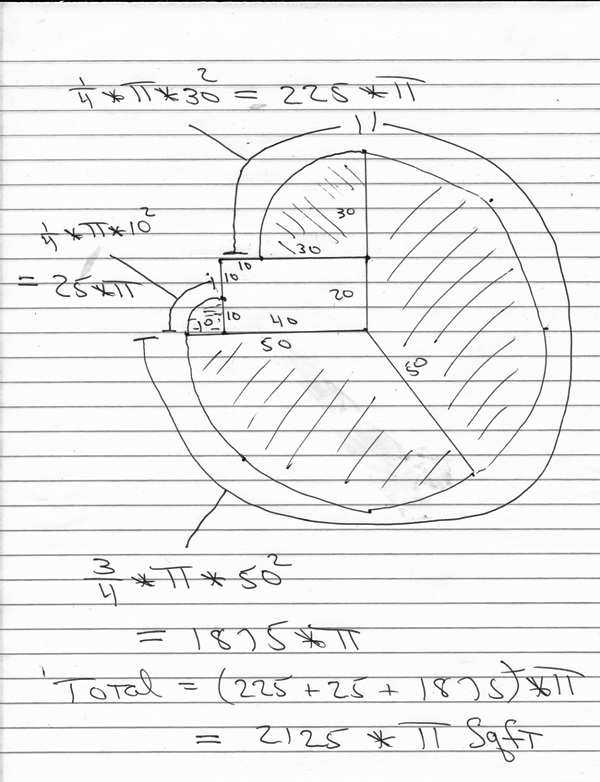 1/4 * π * 30² = 225 * π
30
1/4 * π * 10²
= 25 * π
30
10
10
20
10
10
40
50
50
3/4 * π * 50²
= 1875 * π
Total = (225 + 25 + 1875) * π
= 2125 * π Sqft